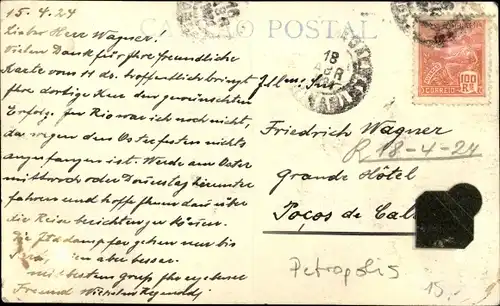 CARTÃO POSTAL
15.4.24
Lieber Herr Wagner!
Vielen Dank für Ihre freundliche
Karte vom 11 ds. hoffentlich bringt
Ihre dortige Kur den gewünschten
Erfolg. In Rio war ich noch nicht,
da wegen den Osterfesten nichts
anzufangen ist. Werde am Oster
mittwoch oder Donnerstag hinunter
fahren und hoffe Ihnen dann über
die Reise berichten zu können.
Die Ita dampfer gehen nur bis
aber besser.
mit bestem Gruss Ihr ergebener
Freund
18
ABR
Illmo. Snr.
Friedrich Wagner
R. 18-4-24
Grande Hôtel
Poços de Cal
Petropolis
15
100 Rs
CORREIO